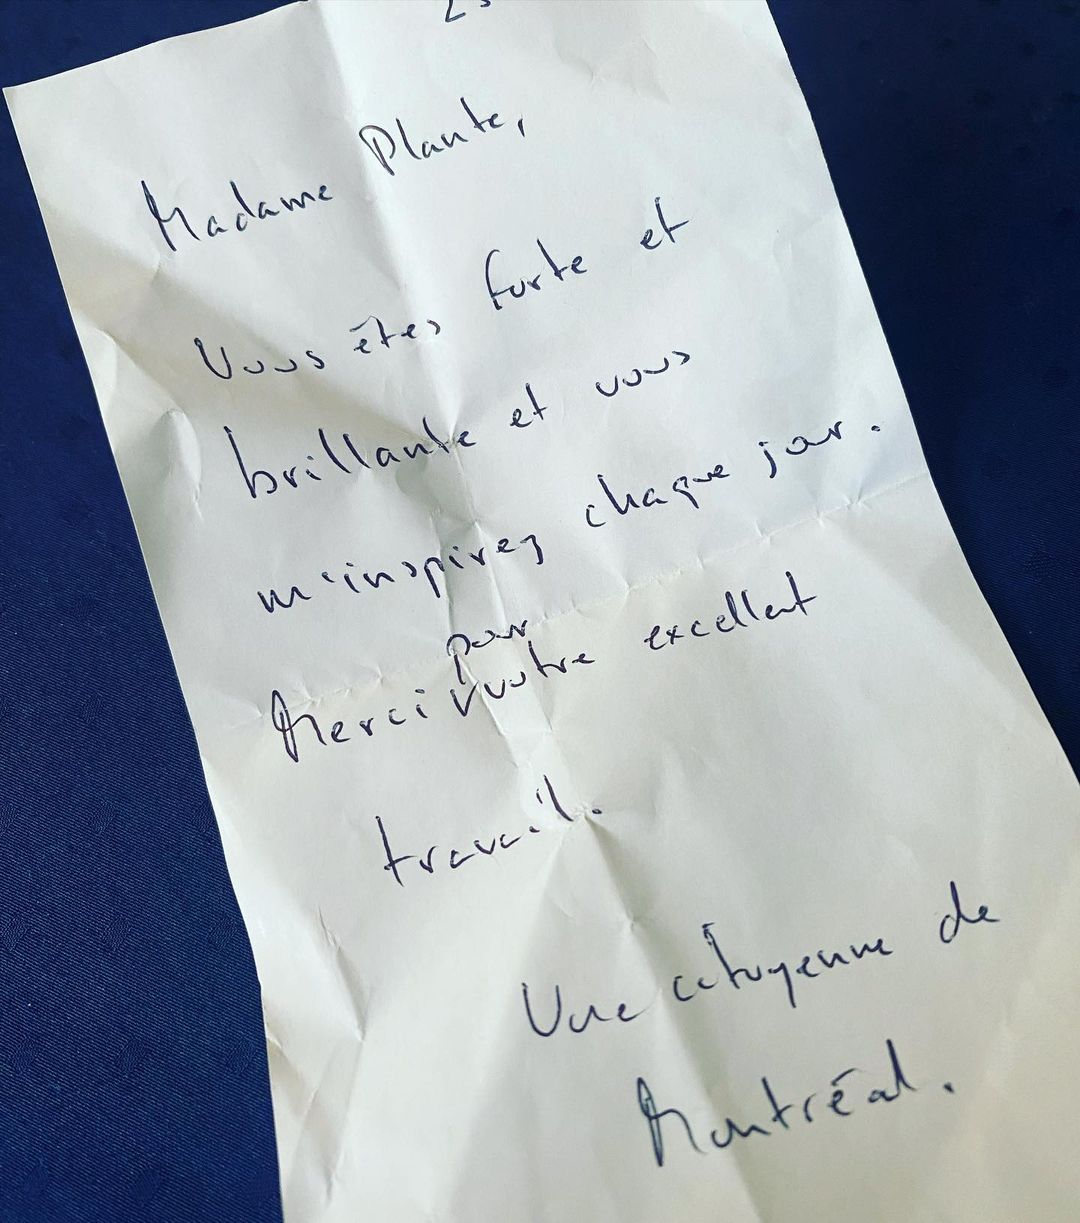 Madame Plante,
Vous êtes forte et
brillante et vous
m'inspirez chaque jour.
pour
Merci votre excellent
travail.
Une citoyenne de
Montréal.